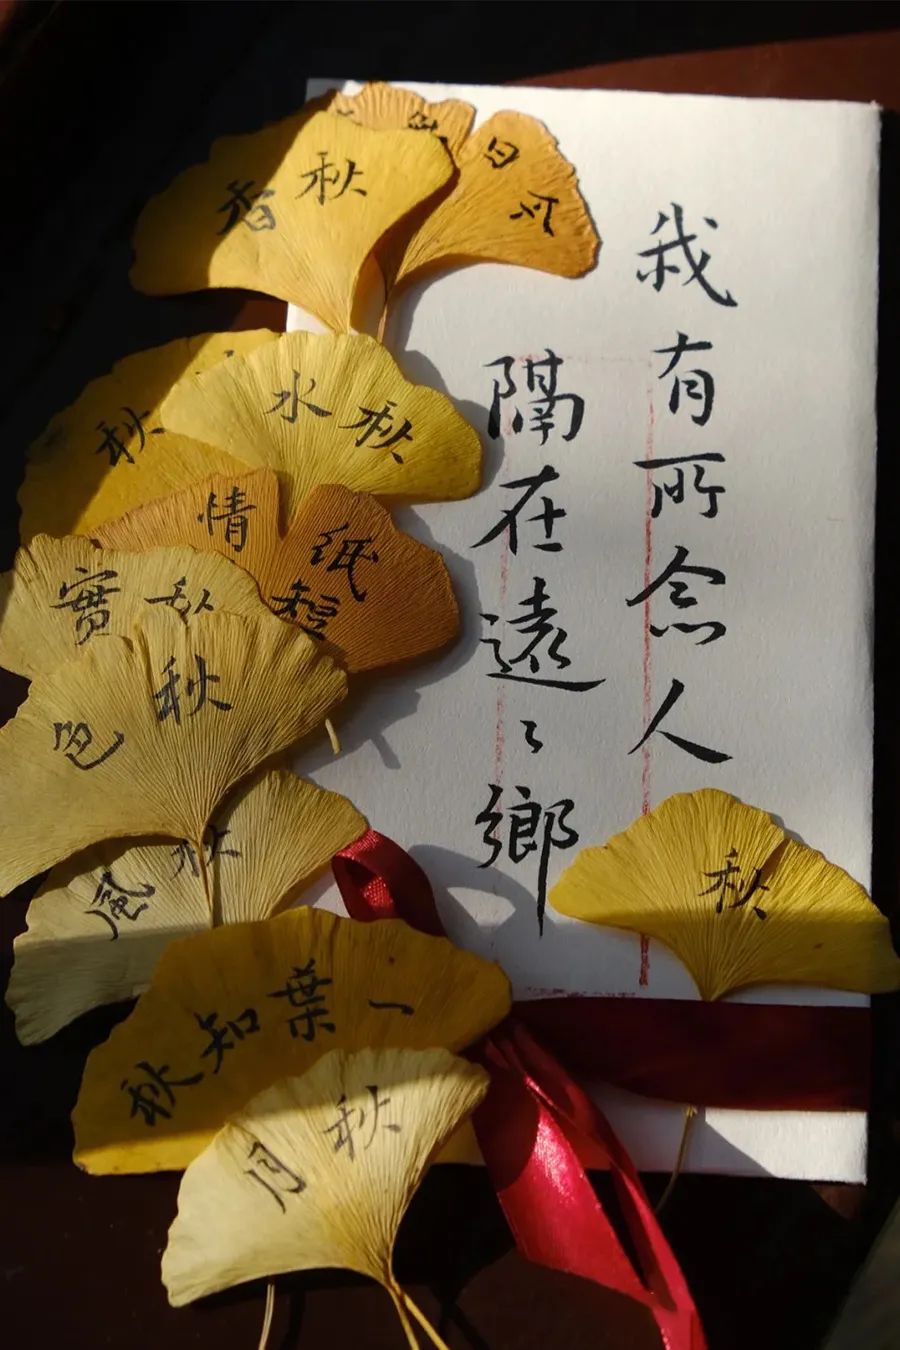 我有所念人
隔在遠〻鄉
秋香
秋水
秋
情
纸
實秋
秋色
秋風
一葉知秋
秋月
秋